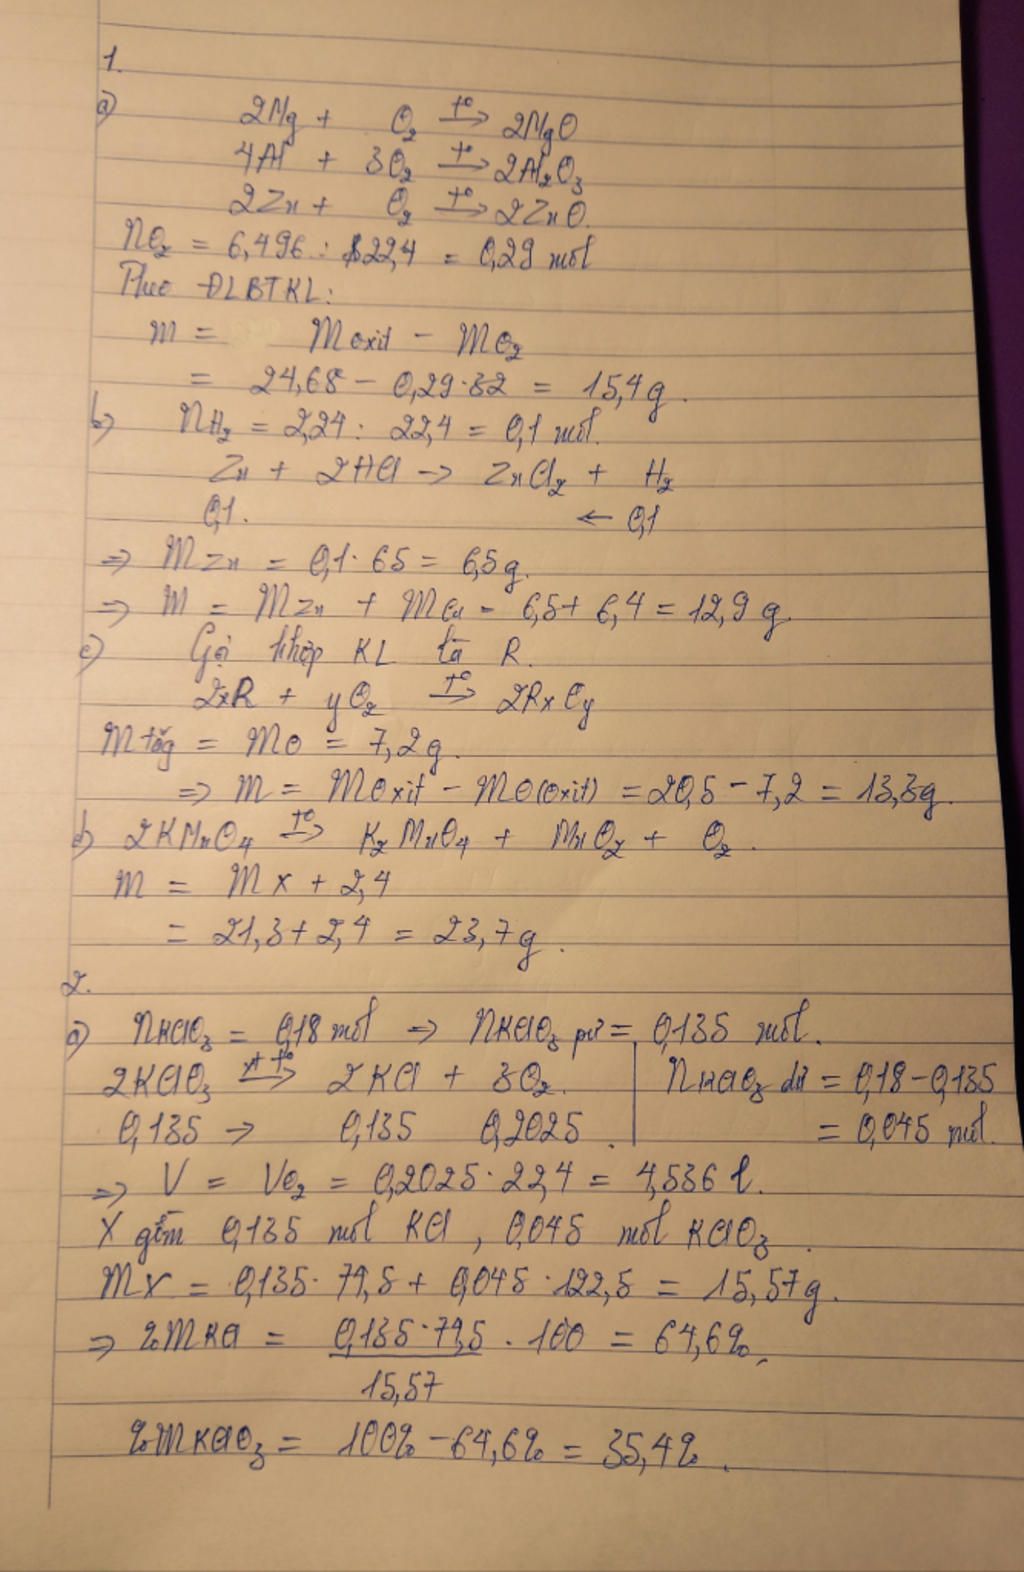 1.
a) 2Mg + O₂ →(t°) 2MgO
4Al + 3O₂ →(t°) 2Al₂O₃
2Zn + O₂ →(t°) 2ZnO.
nO₂ = 6,496 : 22,4 = 0,29 mol
Theo ĐLBTKL:
m = m oxit - mO₂
= 24,68 - 0,29·32 = 15,4g.
b) nH₂ = 2,24 : 22,4 = 0,1 mol.
Zn + 2HCl → ZnCl₂ + H₂
0,1. ← 0,1
⇒ mZn = 0,1·65 = 6,5g.
⇒ m = mZn + mCu = 6,5 + 6,4 = 12,9 g
c) Gọi hhợp KL là R.
2xR + yO₂ →(t°) 2RxOy
m tăg = mO = 7,2g.
⇒ m = m oxit - mO(oxit) = 20,5 - 7,2 = 13,3g.
d) 2KMnO₄ →(t°) K₂MnO₄ + MnO₂ + O₂.
m = mX + 2,4
= 21,3 + 2,4 = 23,7g.
2.
a) nKClO₃ = 0,18 mol ⇒ nKClO₃ pứ = 0,135 mol.
2KClO₃ →(xt t°) 2KCl + 3O₂. | nKClO₃ dư = 0,18 - 0,135
0,135 → 0,135 0,2025. | = 0,045 mol.
⇒ V = VO₂ = 0,2025·22,4 = 4,536 l.
X gồm 0,135 mol KCl, 0,045 mol KClO₃.
mX = 0,135·74,5 + 0,045·122,5 = 15,57g.
⇒ %mKCl = 0,135·74,5 / 15,57 · 100 = 64,6%.
%mKClO₃ = 100% - 64,6% = 35,4%.